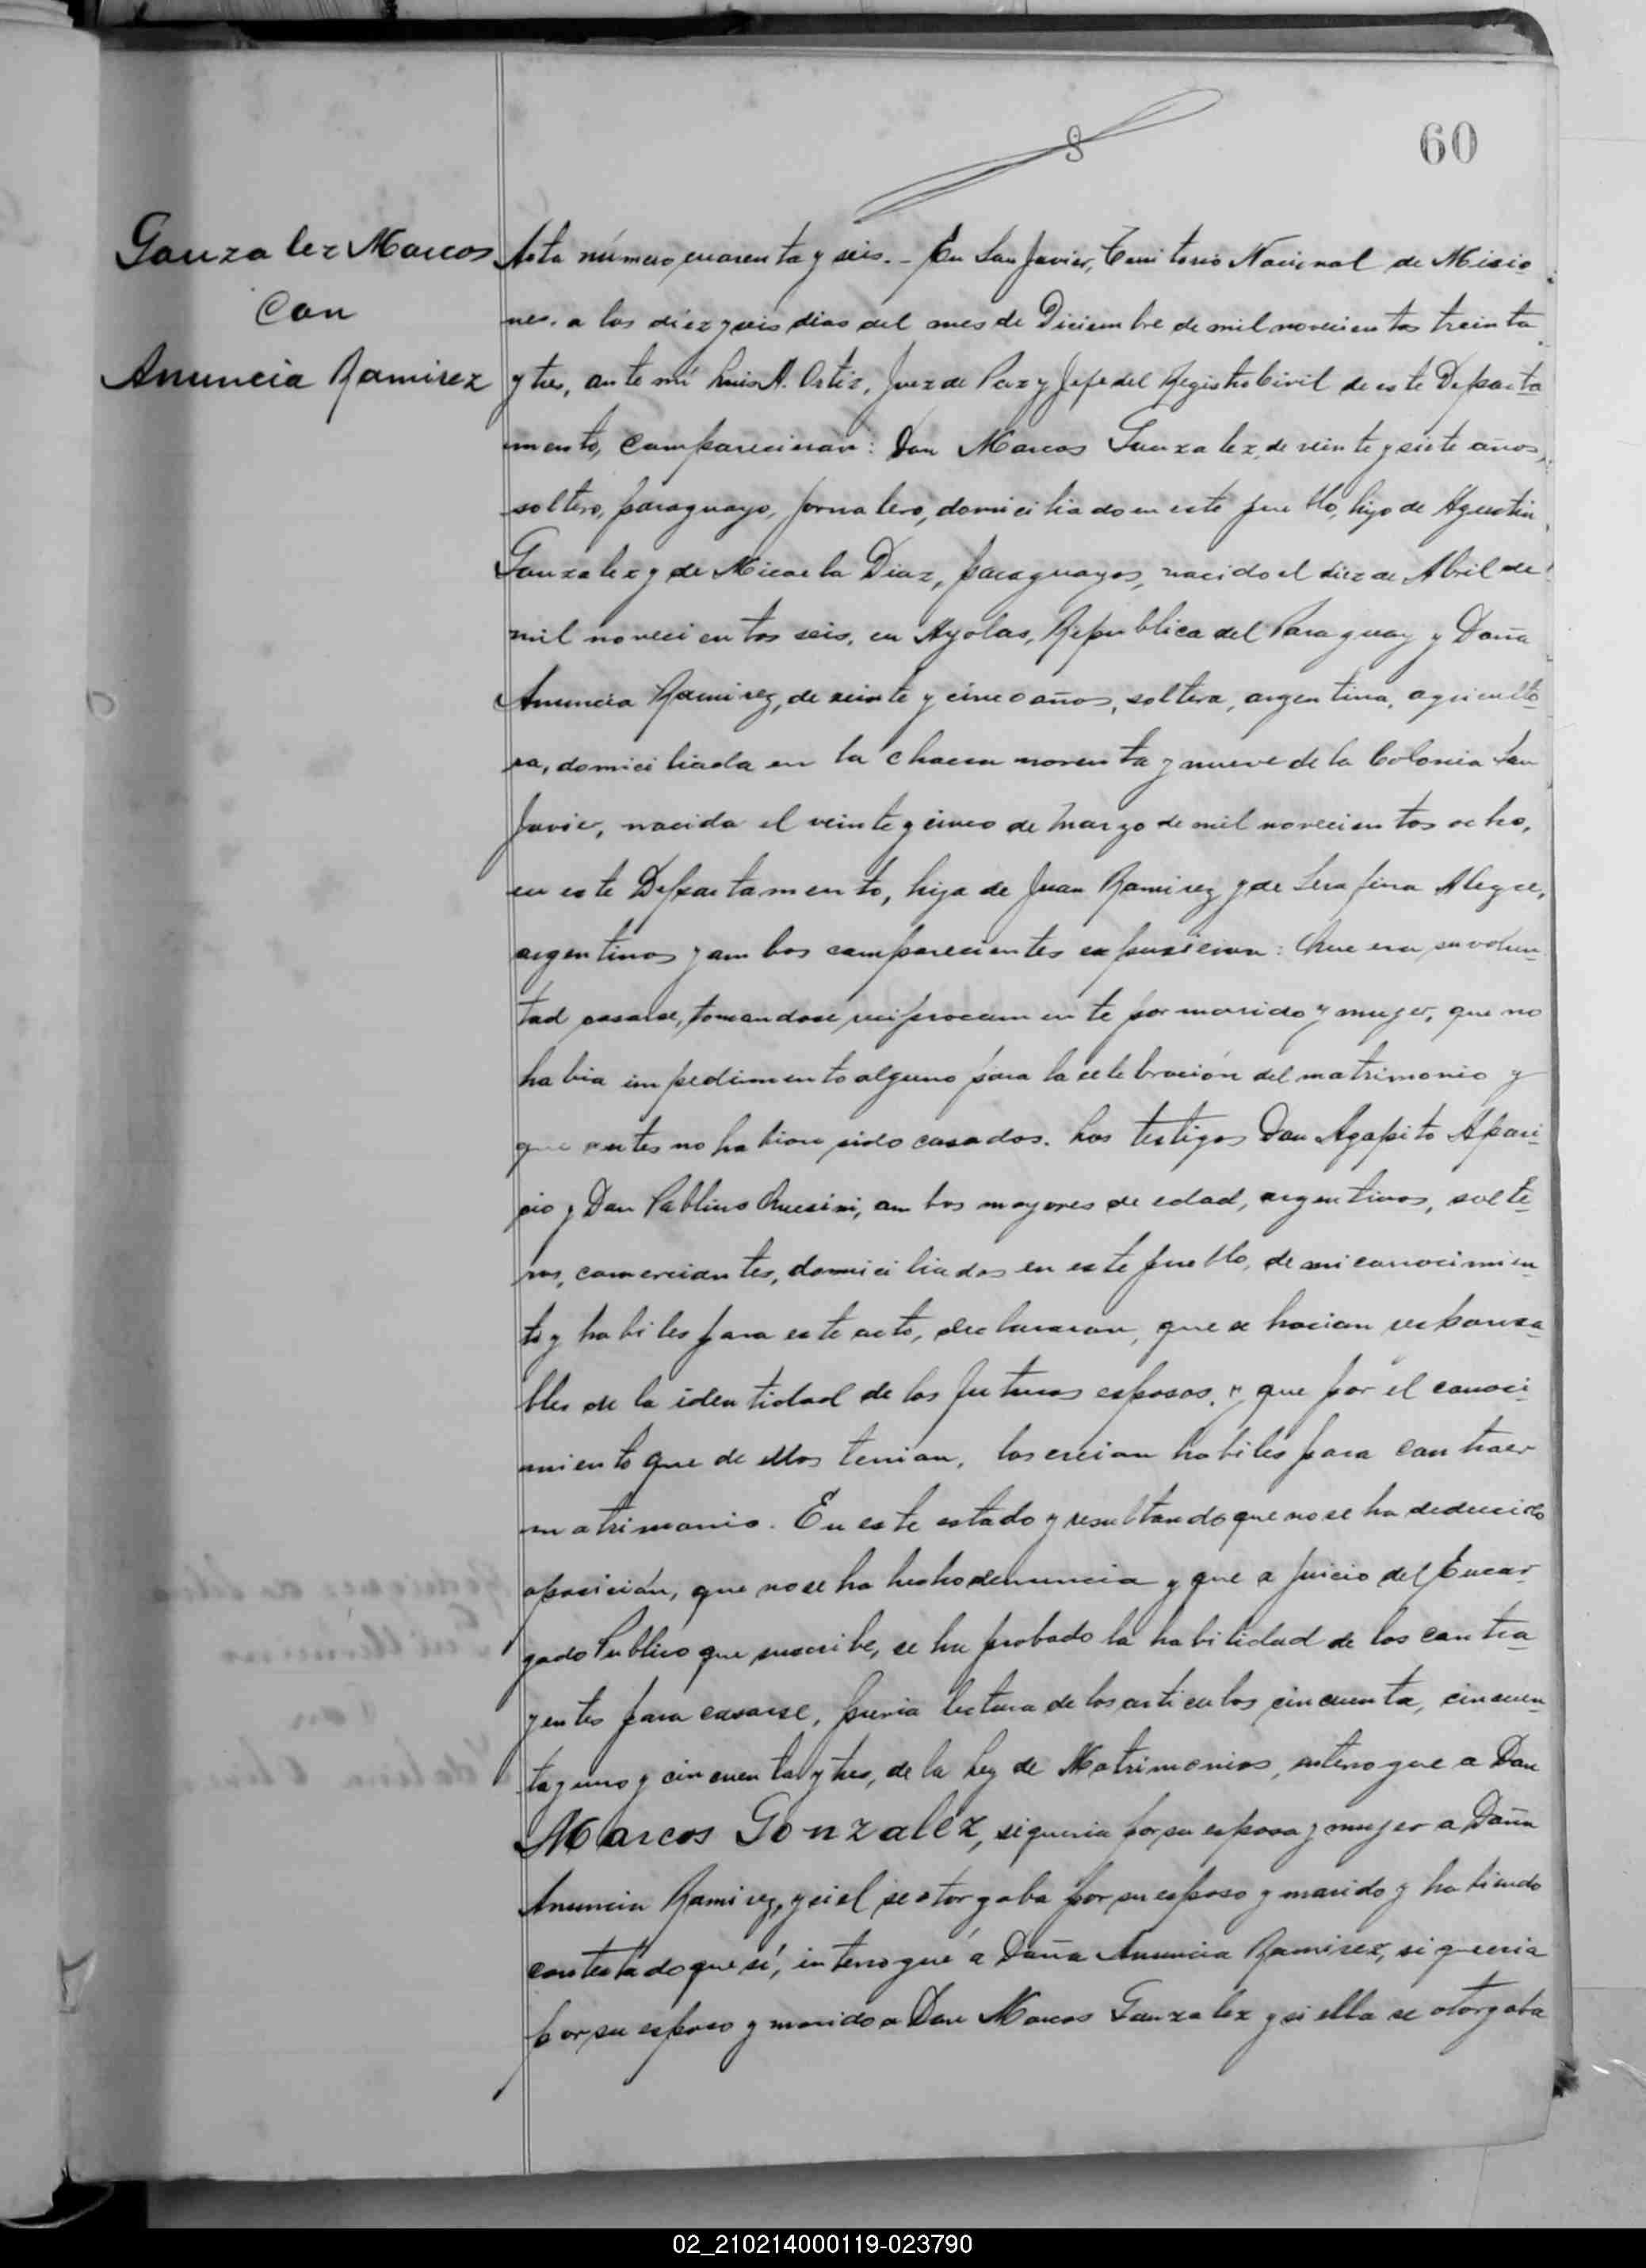 60
Gonzalez Marcos
Con
Anuncia Ramirez
Acta número cuarenta y seis. - En San Javier, Territorio Nacional de Misio
nes, a los diez y seis dias del mes de Diciembre de mil novecientos treinta
y tres, ante mí Luis A. Ortiz, Juez de Paz y Jefe del Registro Civil de este Departa
mento, comparecieron: Don Marcos Gonzalez, de veinte y siete años,
soltero, paraguayo, jornalero, domiciliado en este pueblo, hijo de Agustin
Gonzalez y de Micaela Diaz, paraguayos, nacido el diez de Abril de
mil novecientos seis, en Ayolas, Republica del Paraguay y Doña
Anuncia Ramirez, de veinte y cinco años, soltera, argentina, agriculto
ra, domiciliada en la chacra noventa y nueve de la Colonia San
Javier, nacida el veinte y cinco de Marzo de mil novecientos ocho,
en este Departamento, hija de Juan Ramirez y de Serafina Alegre,
argentinos y ambos comparecientes expusieron: Que era su volun
tad casarse, tomandose reciprocamente por marido y mujer, que no
habia impedimento alguno para la celebración del matrimonio y
que antes no habian sido casados. Los testigos Don Agapito Apari
cio y Don Pablino, ambos mayores de edad, argentinos, solte
ros, comerciantes, domiciliados en este pueblo, de mi conocimien
to y habiles para este acto, declararon, que se hacian responsa
bles de la identidad de los futuros esposos, y que por el conoci
miento que de ellos tenian, los creian habiles para contraer
matrimonio. En este estado y resultando que no se ha deducido
oposición, que no se ha hecho denuncia y que a juicio del Encar
gado Publico que suscribe, se ha probado la habilidad de los contra
yentes para casarse, previa lectura de los articulos cincuenta, cincuen
ta y uno y cincuenta y tres, de la Ley de Matrimonios, interrogue a Don
Marcos Gonzalez, si queria por su esposa y mujer a Doña
Anuncia Ramirez, y si el se otorgaba por su esposo y marido y habiendo
contestado que sí, interrogué a Doña Anuncia Ramirez, si queria
por su esposo y marido a Don Marcos Gonzalez y si ella se otorgaba
02_210214000119-023790